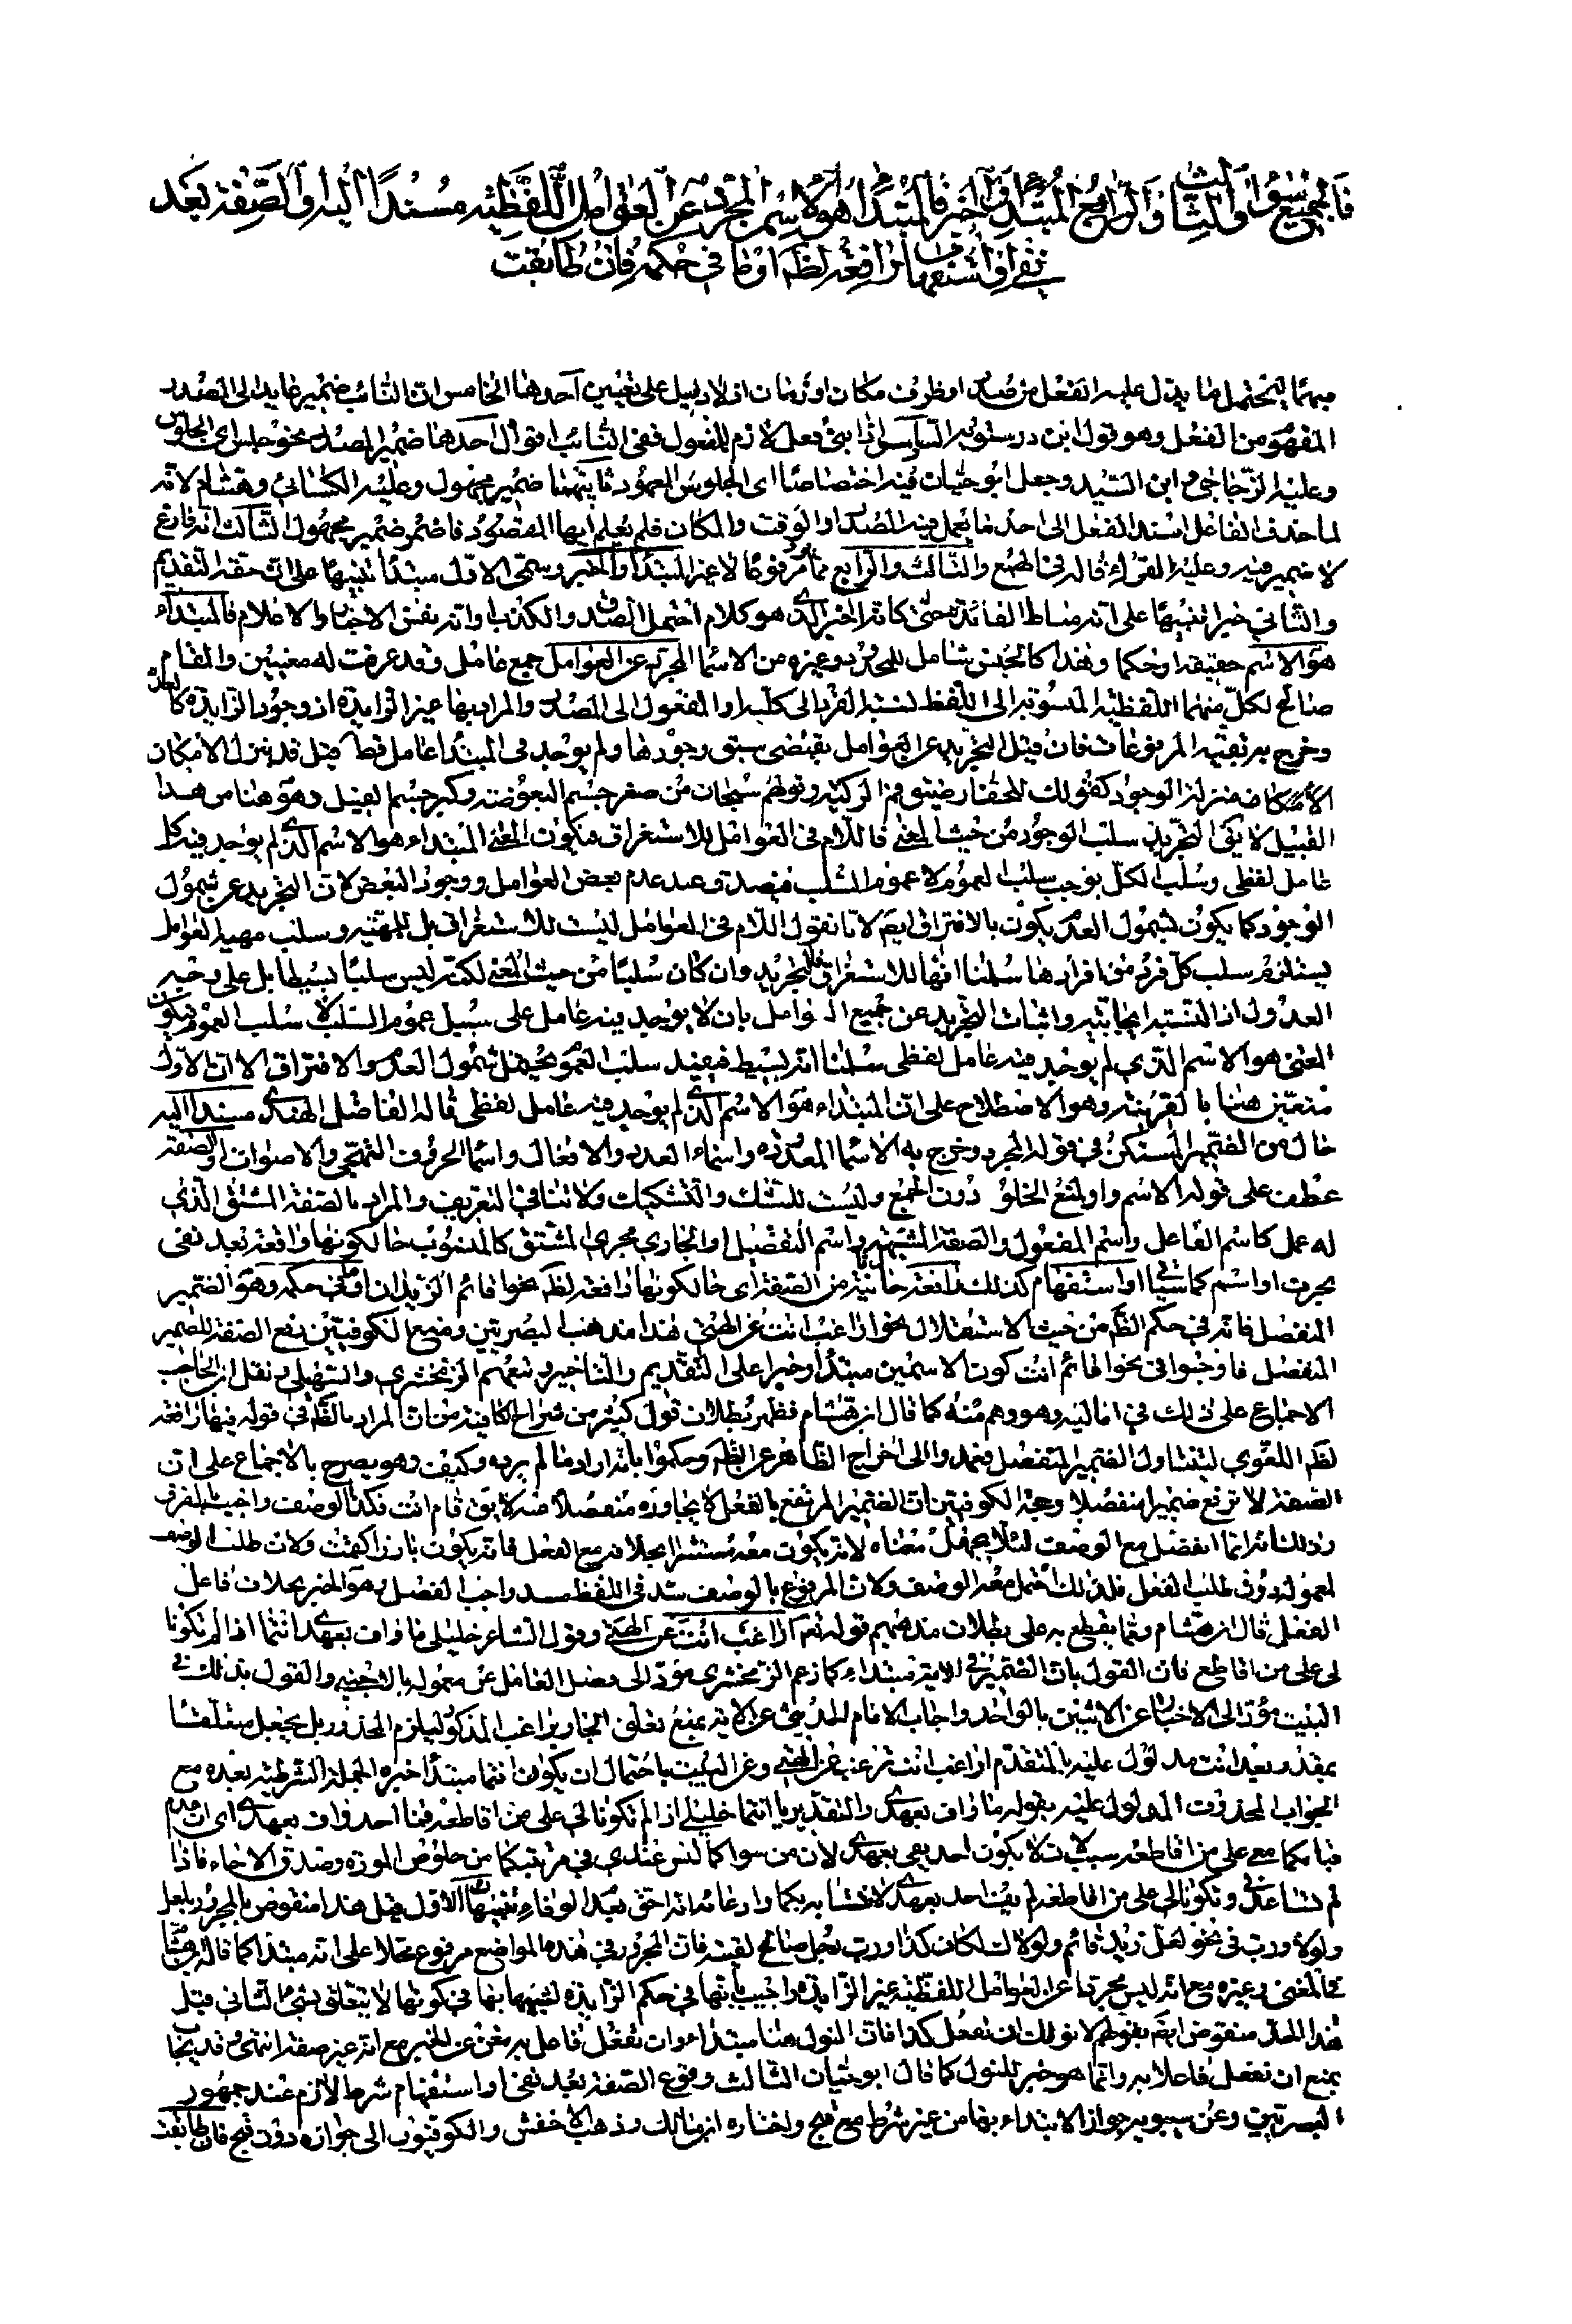 فالجميع سواء والثالث والرابع المبتدأ والخبر فالمبتدأ هو الاسم المجرد عن العوامل اللفظية مسندا اليه او الصفة بعد
نفي او استفهام رافعة لظاهر او ما في حكمه فان طابقت
مبهما ليحتمل ما يدل عليه الفعل من مصدر او ظرف مكان او زمان اذ لا دليل على تعيين احدها الخامس ان النائب ضمير عايد الى المصدر
المفهوم من الفعل وهو قول ابن درستويه السادس اذا بني فعل لازم للمفعول ففي النائب اقوال احدها ضمير المصدر نحو جلس اي الجلوس
وعليه الزجاجي و ابن السيد وجعل ابو حيان فيه اختصاصا اى الجلوس المعهود ثانيهما ضمير مجهول وعليه الكسائي وهشام لانه
لما حذف الفاعل اسند الفعل الى احد ما يعمل فيه المصدر او الوقت والمكان فلم يعلم ايها المقصود فاضمر ضمير مجهول الثالث انه فارغ
لا ضمير فيه وعليه الفراء قاله في الهمع والثالث والرابع مما مر مرفوعا لا غير المبتدأ والخبر وسمى الاول مبتدأ تنبيها على ان حقه التقديم
والثاني خبرا تنبيها على انه مناط الفائدة حتى كانه الخبر الذي هو كلام احتمل الصدق والكذب وانه نفس الاخبار والاعلام فالمبتداء
هو الاسم حقيقة او حكما وهذا كالجنس شامل للمحدود وغيره من الاسما المجرد عن العوامل جمع عامل وقد عرفت له معنيين والمقام
صالح لكل منهما اللفظية المنسوبة الى اللفظ لنسبة الفرد الى كليه او المفعول الى المصدر والمراد بها غير الزايدة اذ وجود الزايدة كلا
وخرج به بقية المرفوعات فان قيل التجريد عن العوامل يقتضى سبق وجودها ولم يوجد في المبتدأ عامل قط قيل قد ينزل الامكان
منزلة الوجود كقولك للحفار ضيق فم الركية وقولهم سبحان من صغر جسم البعوضة وكبر جسم الفيل وهو هنا من هذا
القبيل لا يقال التجريد سلب الوجود من حيث المعنى فاللام في العوامل للاستغراق فيكون المعنى المبتداء هو الاسم الذي لم يوجد فيه كل
عامل لفظي وسلب الكل يوجب سلب العموم لا عموم السلب فيصدق عند عدم بعض العوامل ووجود البعض لان التجريد عن شمول
الوجود كما يكون لشمول العدم يكون بالافتراق ايضا لانا نقول اللام في العوامل ليست للاستغراق بل للمهية وسلب مهية العوامل
يستلزم سلب كل فرد من افرادها سلمنا انها للاستغراق لكن التجريد وان كان سلبيا من حيث المعنى لكنه ليس سلبيا بسيطا بل على وجه
العدول اذ النسبة ايجابية واثبات التجريد عن جميع العوامل بان لا يوجد فيه عامل على سبيل عموم السلب لا سلب العموم فيكون
المعنى هو الاسم الذي لم يوجد فيه عامل لفظي سلمنا انه بسيط فيفيد سلب العموم فيحتمل شمول العدم والافتراق الا ان الاول
متعين هنا بالقرينة وهو الاصطلاح على ان المبتداء هو الاسم الذي لم يوجد فيه عامل لفظي قاله الفاضل الهندي مسندا اليه
حال من الضمير المستكن في قوله المجرد وخرج به الاسما المعدودة واسماء العدد والافعال واسما الحروف التهجي والاصوات او الصفة
عطف على قوله الاسم واو لمنع الخلو دون الجمع وليست للشك والتشكيك ولا تنافي التعريف والمراد بالصفة المشتق الذي
له عمل كاسم الفاعل واسم المفعول والصفة المشبهة واسم التفضيل او الجاري مجرى المشتق كالمنسوب حالكونها واقعة بعد نفي
بحرف او اسم كما سيأتي او استفهام كذلك رافعة حال ثانية من الصفة اى حالكونها رافعة لظاهر نحو اقائم الزيدان او ما في حكمه وهو الضمير
المنفصل فانه في حكم الظاهر من حيث الاستقلال نحو اراغب انت عن الهتي هذا مذهب البصريين ومنع الكوفيين رفع الصفة للضمير
المنفصل فاوجبوا في نحو اقائم انت كون الاسمين مبتدأ وخبرا على التقديم والتاخير وتبعهم الزمخشري والسهيلي ونقل ابن الحاجب
الاجماع على ذلك في اماليه وهو وهم منه كما قال ابن هشام فظهر بطلان قول كثير من شراح الكافية من ان المراد بالظاهر في قوله فيها رافعة
لظاهر اللغوي ليتناول الضمير المنفصل فعمدوا الى اخراج الظاهر عن الظاهر وحكموا بانه اراد ما لم يرده وكيف وهو يصرح بالاجماع على ان
الصفة لا ترفع ضميرا منفصلا وحجة الكوفيين ان الضمير المرتفع بالفعل لا يجاوره منفصلا عنه لا يقال قام انت فكذا الوصف واجيب بالفرق
وذلك انه انما انفصل مع الوصف لئلا يجهل معناه لانه يكون معه مستترا بخلافه مع الفعل فانه يكون بارزا كقمت ولان طلب الوصف
لمعموله دون طلب الفعل فلذلك احتمل معه الوصف ولان المرفوع بالوصف سد في اللفظ مسد واجب الفصل وهو الخبر بخلاف فاعل
الفعل قال ابن هشام ومما يقطع به على بطلان مذهبهم قوله تعالى اراغب انت عن الهتي وقول الشاعر خليلي ما واف بعهدي انتما اذا لم تكونا
لى على من اقاطع فان القول بان الضمير في الاية مبتداء كما زعم الزمخشري مؤد الى فصل العامل عن معموله بالاجنبي والقول بذلك في
البيت مؤد الى الاخبار عن الاثنين بالواحد واجاب الامام الحديثي عن الاية بمنع تعلق الجار براغب المذكور ليلزم المحذور بل يجعل متعلقا
بمقدر بعد انت مدلول عليه بالمتقدم اراغب انت ترغب عن الهتي وعن البيت باحتمال ان يكون انتما مبتدأ خبره الجملة الشرطية بعده مع
الجواب المحذوف المدلول عليه بقوله ما واف بعهدي والتقدير يا خليلي انتما اذا لم تكونا لى على من اقاطعه فما احد واف بعهدي اى ان عدم
قيامكما معي على من اقاطعه سبب لان لا يكون احد يفي بعهدي لان من سواكما ليس عندي في مرتبتكما من خلوص المودة وصدق الاخاء فاذا
لم تساعداني وتكونا لي على من اقاطعه لم يف احد بعهدي لاقتدائه بكما وادعائه انه احق بعدم الوفاء تنبيهات الاول قيل هذا منقوض بالمجرور بلعل
ولولا ورب في نحو لعل زيد قائم ولولاك لكان كذا ورب رجل صالح لقيته فان المجرور في هذه المواضع مرفوع محلا على انه مبتدأ كما قاله ابن هشام
في المغنى وغيره مع انه ليس مجردا عن العوامل اللفظية غير الزايدة واجيب بانها في حكم الزايدة لشبهها بها في كونها لا يتعلق بشيء الثاني قيل
هذا الحد منقوض ايضا بقولهم لا نولك ان تفعل كذا فان النول هنا مبتداء وان تفعل فاعل به مغن عن الخبر مع انه غير صفة انتهى وقد يجاب
بمنع ان تفعل فاعلا به وانما هو خبر للنول كما قال ابو حيان الثالث وقوع الصفة بعد نفي او استفهام شرط لازم عند جمهور
البصريين وعن سيبويه جواز الابتداء بها من غير شرط مع قبح واختاره ابن مالك وذهب الاخفش والكوفيون الى جوازه دون قبح فان طابقت